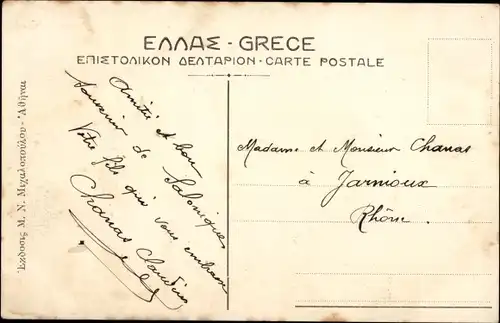 ΕΛΛΑΣ - GRECE
ΕΠΙΣΤΟΛΙΚΟΝ ΔΕΛΤΑΡΙΟΝ - CARTE POSTALE
Amitié et bon
souvenir de Salonique
Votre fils qui vous embrasse
Chanas Claudius
Madame et Monsieur Chanas
à Jarnioux
Rhône
Ἔκδοσις Μ. Ν. Μιχαλοπούλου - Ἀθῆναι